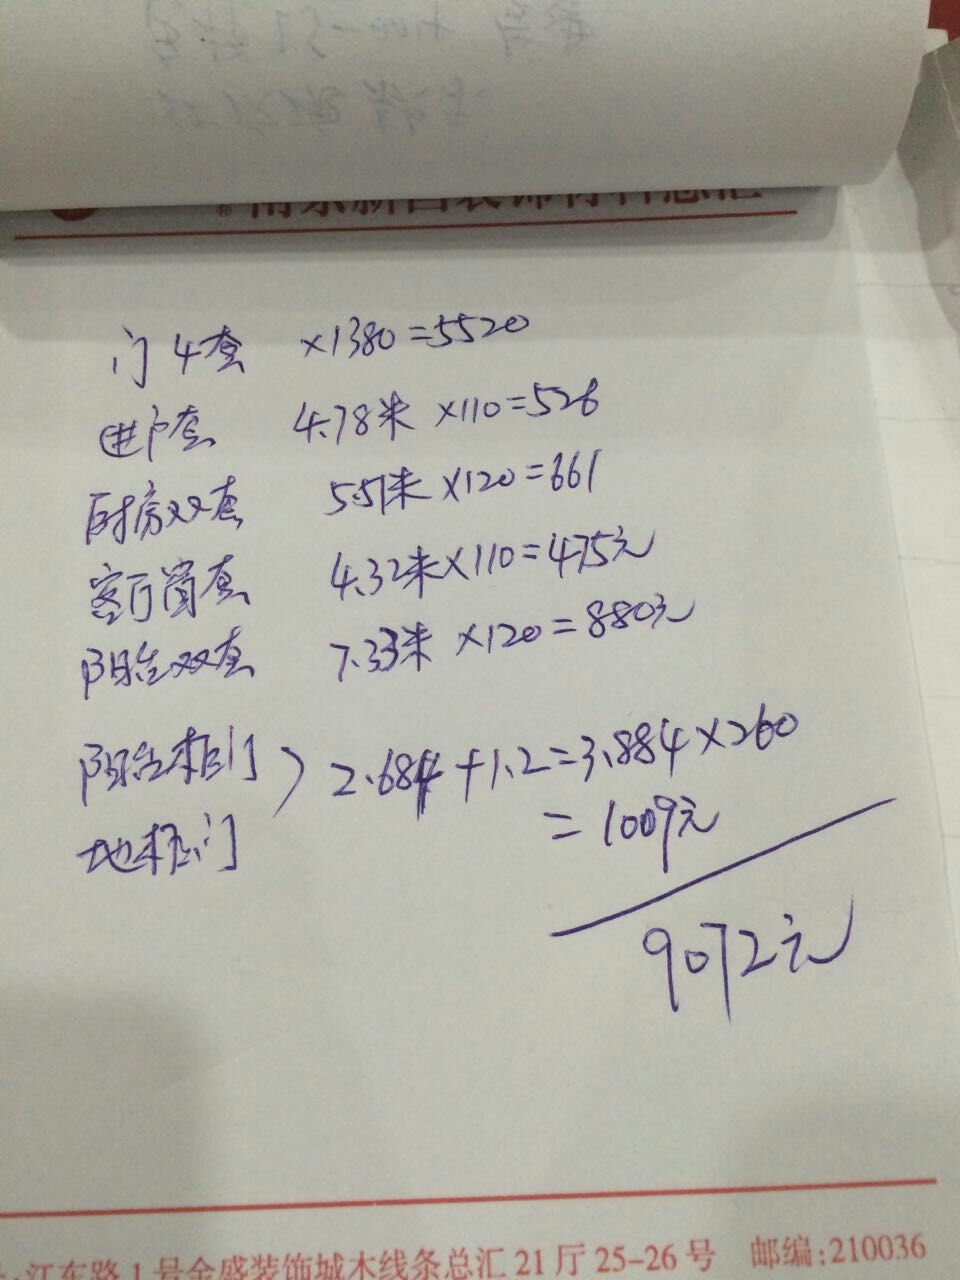 门4套 ×1380=5520
进户套 4.78米 ×110=526
厨房双套 5.51米 ×120=661
客厅窗套 4.32米×110=475元
阳台双套 7.33米 ×120=880元
阳台柜门 ) 2.684+1.2=3.884×260
地柜门 =1009元
9072元
江东路1号金盛装饰城木线条总汇21厅25-26号 邮编:210036